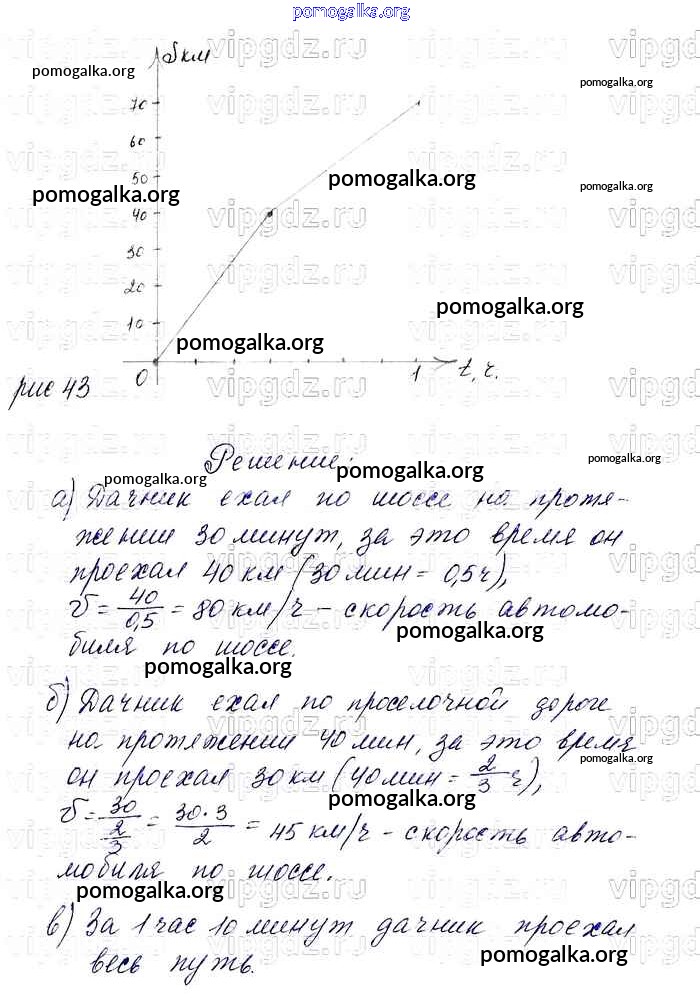 pomogalka.org
S км
pomogalka.org
pomogalka.org
70
60
50
pomogalka.org
pomogalka.org
pomogalka.org
40
30
20
pomogalka.org
10
pomogalka.org
0
1
t, ч.
рис 43
Решение:
pomogalka.org
pomogalka.org
pomogalka.org
а) Дачник ехал по шоссе на протя-
жении 30 минут, за это время он
проехал 40 км (30 мин = 0,5 ч),
v = 40/0,5 = 80 км/ч - скорость автомо-
pomogalka.org
биля по шоссе.
pomogalka.org
б) Дачник ехал по проселочной дороге
на протяжении 40 мин, за это время
pomogalka.org
он проехал 30 км (40 мин = 2/3 ч),
pomogalka.org
v = 30/(2/3) = 30·3/2 = 45 км/ч - скорость авто-
мобиля по шоссе.
pomogalka.org
в) За 1 час 10 минут дачник проехал
весь путь.
pomogalka.org
vipgdz.ru